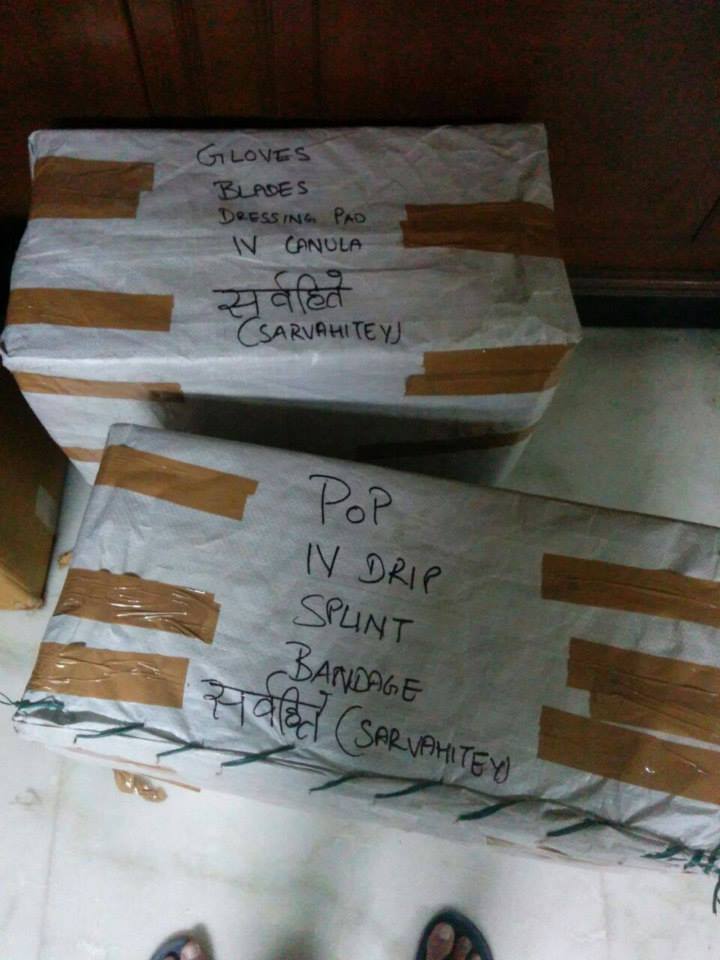 GLOVES
BLADES
DRESSING PAD
IV CANULA
सर्वहिते
(SARVAHITEY)
PoP
IV DRIP
SPLINT
BANDAGE
सर्वहिते (SARVAHITEY)